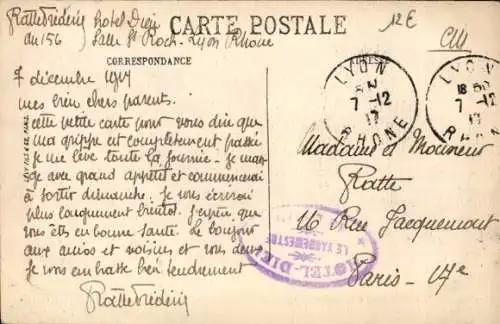 Ratte Frédéric hotel Dieu
du 156 Salle St Roch - Lyon Rhone
CARTE POSTALE
12E
CM
CORRESPONDANCE
ADRESSE
7 décembre 1917
mes bien chers parents.
cette petite carte pour vous dire que
ma grippe est complètement passée
je me lève toute la journée. Je man-
ge avec grand appétit et commencerai
à sortir dimanche. Je vous écrirai
plus longuement bientot. J'espère que
vous êtes en bonne santé. Le bonjour
aux amis et voisins et vous deux
je vous embrasse bien tendrement
Ratte Frédéric
LYON
7 -12
17
RHONE
LYON
18
7 -12
17
RHONE
Madame et Monsieur
Ratte
16 Rue Jacquemont
Paris - 17e
HOTEL-DIEU
LE VAGUEMESTRE